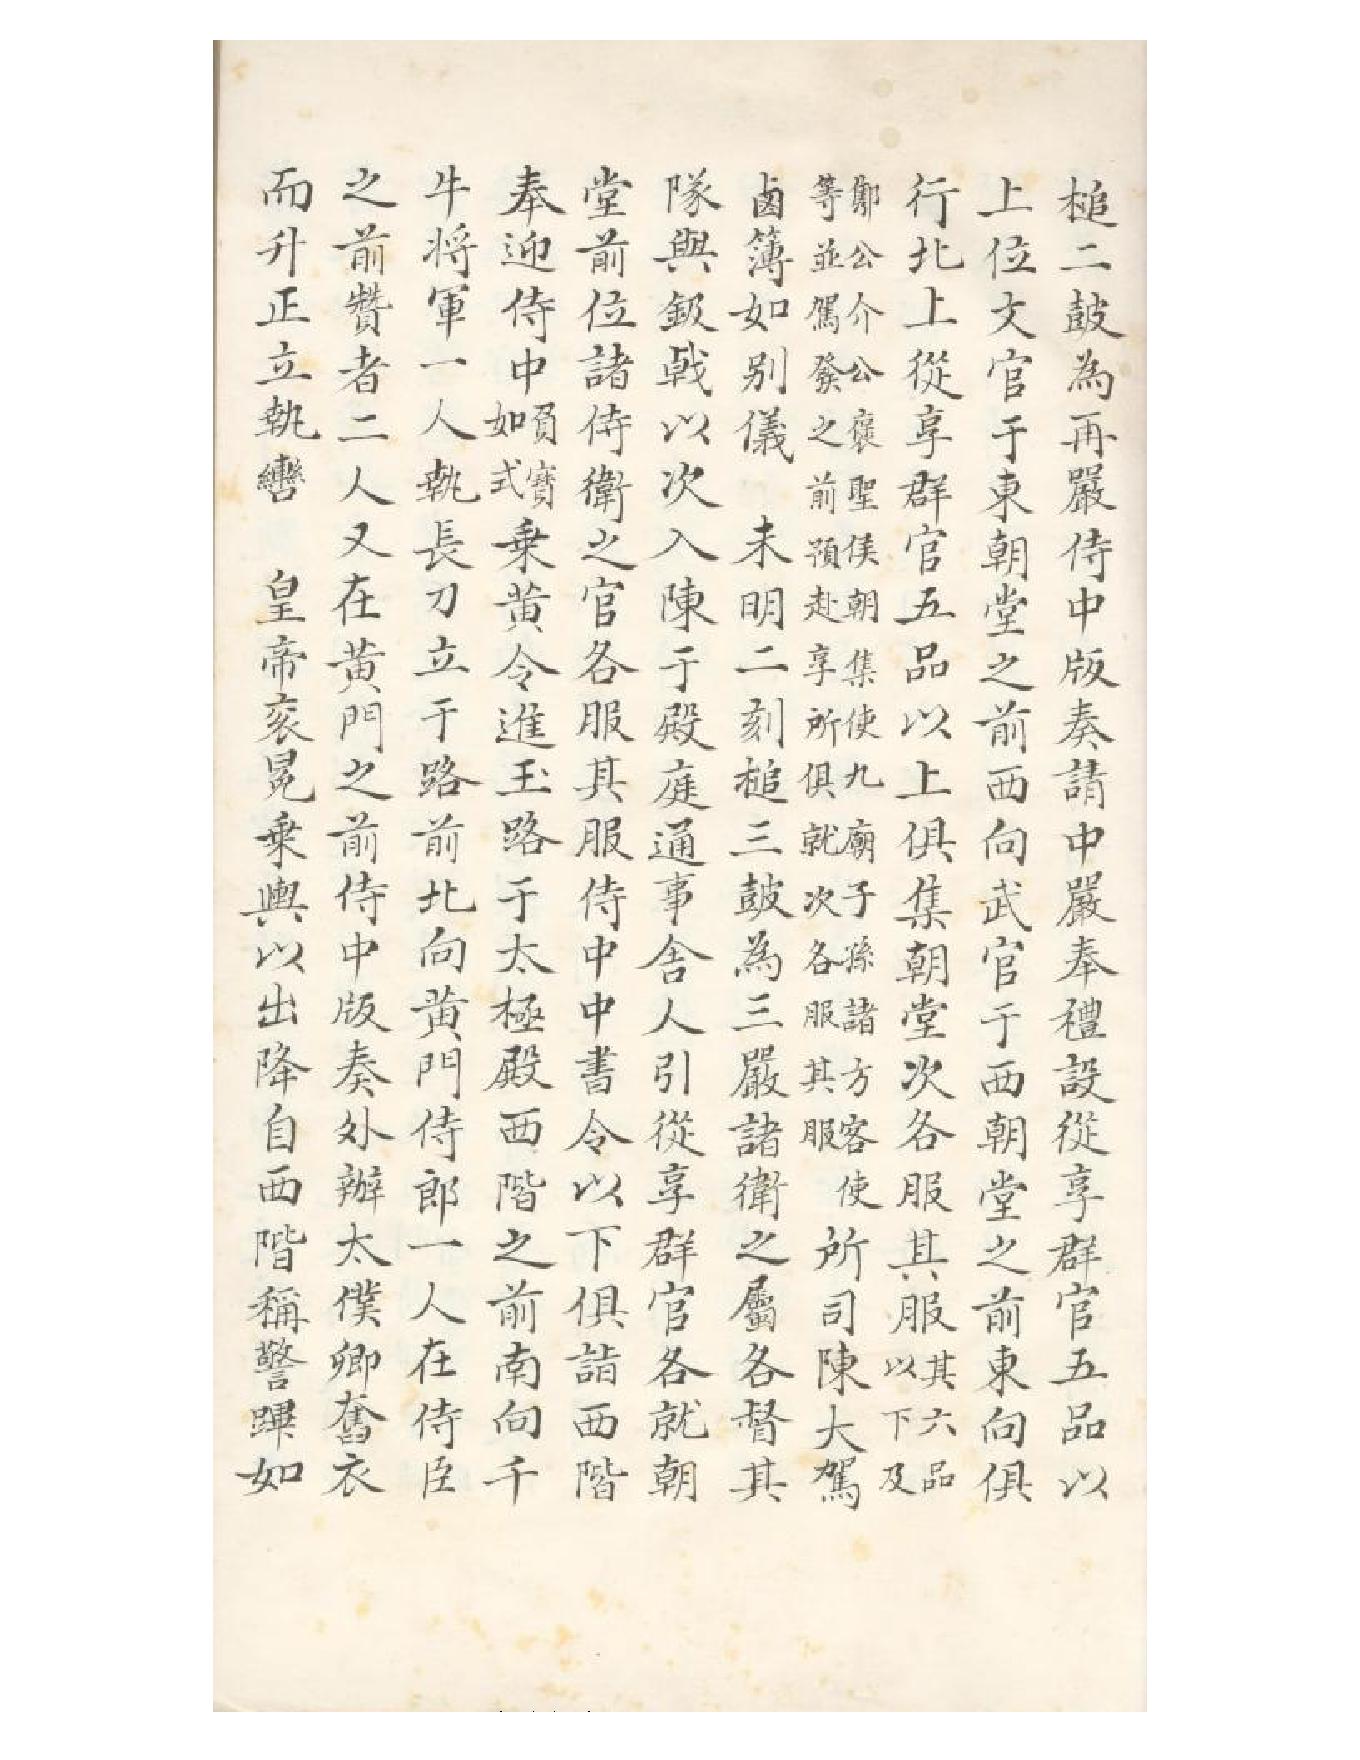 槌二鼓為再嚴侍中版奏請中嚴奉禮設從享群官五品以
上位文官于東朝堂之前西向武官于西朝堂之前東向俱
行北上從享群官五品以上俱集朝堂次各服其服其六品以下及
鄭公介公褒聖侯朝集使九廟子孫諸方客使等並駕發之前預赴享所俱就次各服其服所司陳大駕
鹵簿如别儀 未明二刻槌三鼓為三嚴諸衛之屬各督其
隊與鈒戟以次入陳于殿庭通事舍人引從享群官各就朝
堂前位諸侍衛之官各服其服侍中中書令以下俱詣西階
奉迎侍中負寶如式乗黄令進玉路于太極殿西階之前南向千
牛将軍一人執長刀立于路前北向黄門侍郎一人在侍臣
之前贊者二人又在黄門之前侍中版奏外辦太僕卿奮衣
而升正立執轡 皇帝衮冕乗輿以出降自西階稱警蹕如